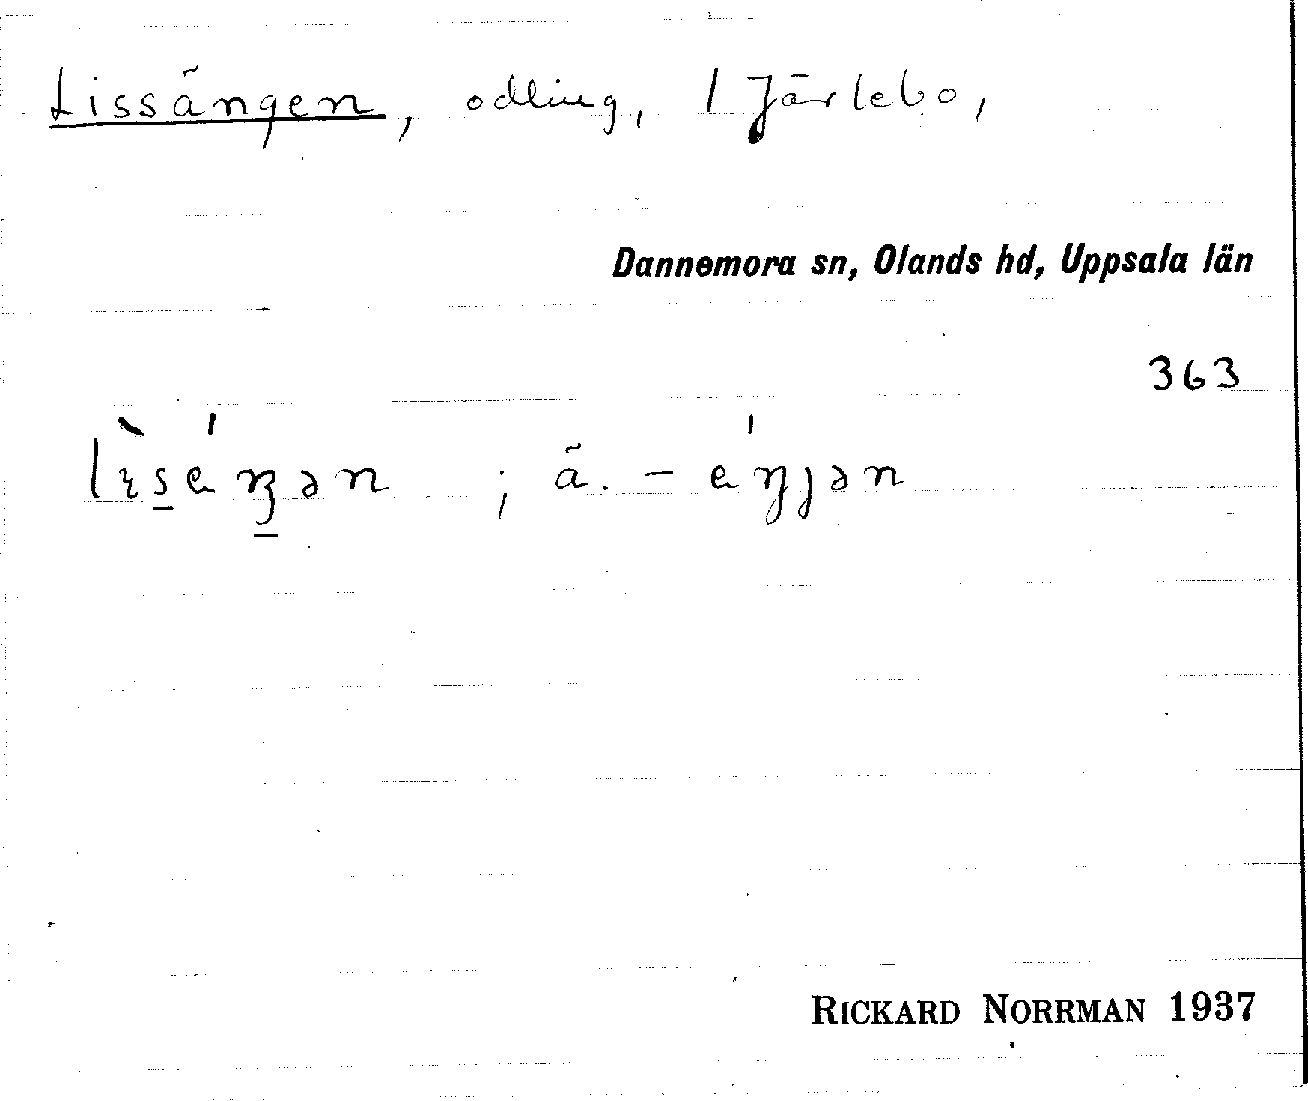 Lissängen, odling, 1 Järlebo,
Dannemora sn, Olands hd, Uppsala län
363
lɩ̀sɑ́ŋən ; ä. – ɑ́ŋȷən
RICKARD NORRMAN 1937